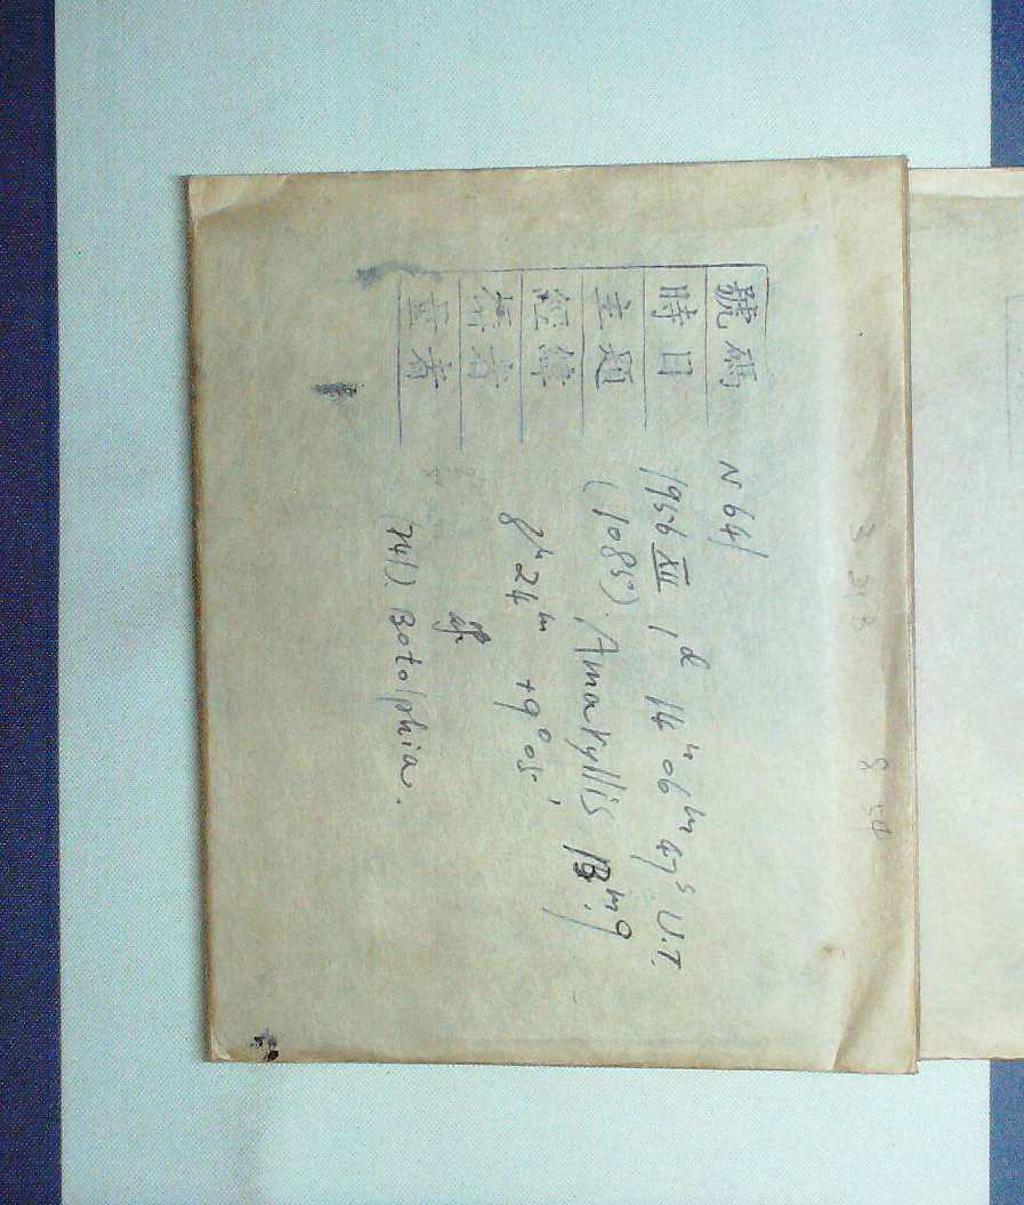 號碼 N 641
時日 1956 XII 1ᵈ 14ʰ 06ᵐ 47ˢ U.T.
主題 (1085). Amaryllis 13ᵐ.9
經緯 8ʰ 24ᵐ +9° 05'
者
者 741). Botolphia.